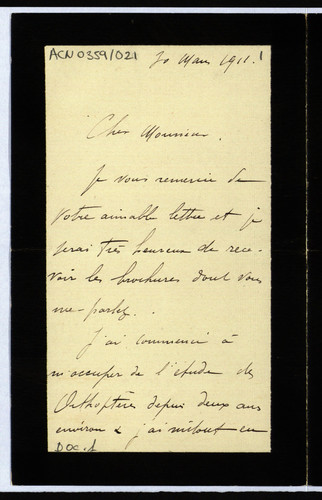 ACN 0359/021
30 Mars 1911. 1
Cher Monsieur.
Je vous remercie de
votre aimable lettre et je
serai très heureux de rece-
voir les brochures dont vous
me parlez.
J'ai commencé à
m'occuper de l'étude des
Orthoptères depuis deux ans
environ & j'ai surtout en
DOC. 1